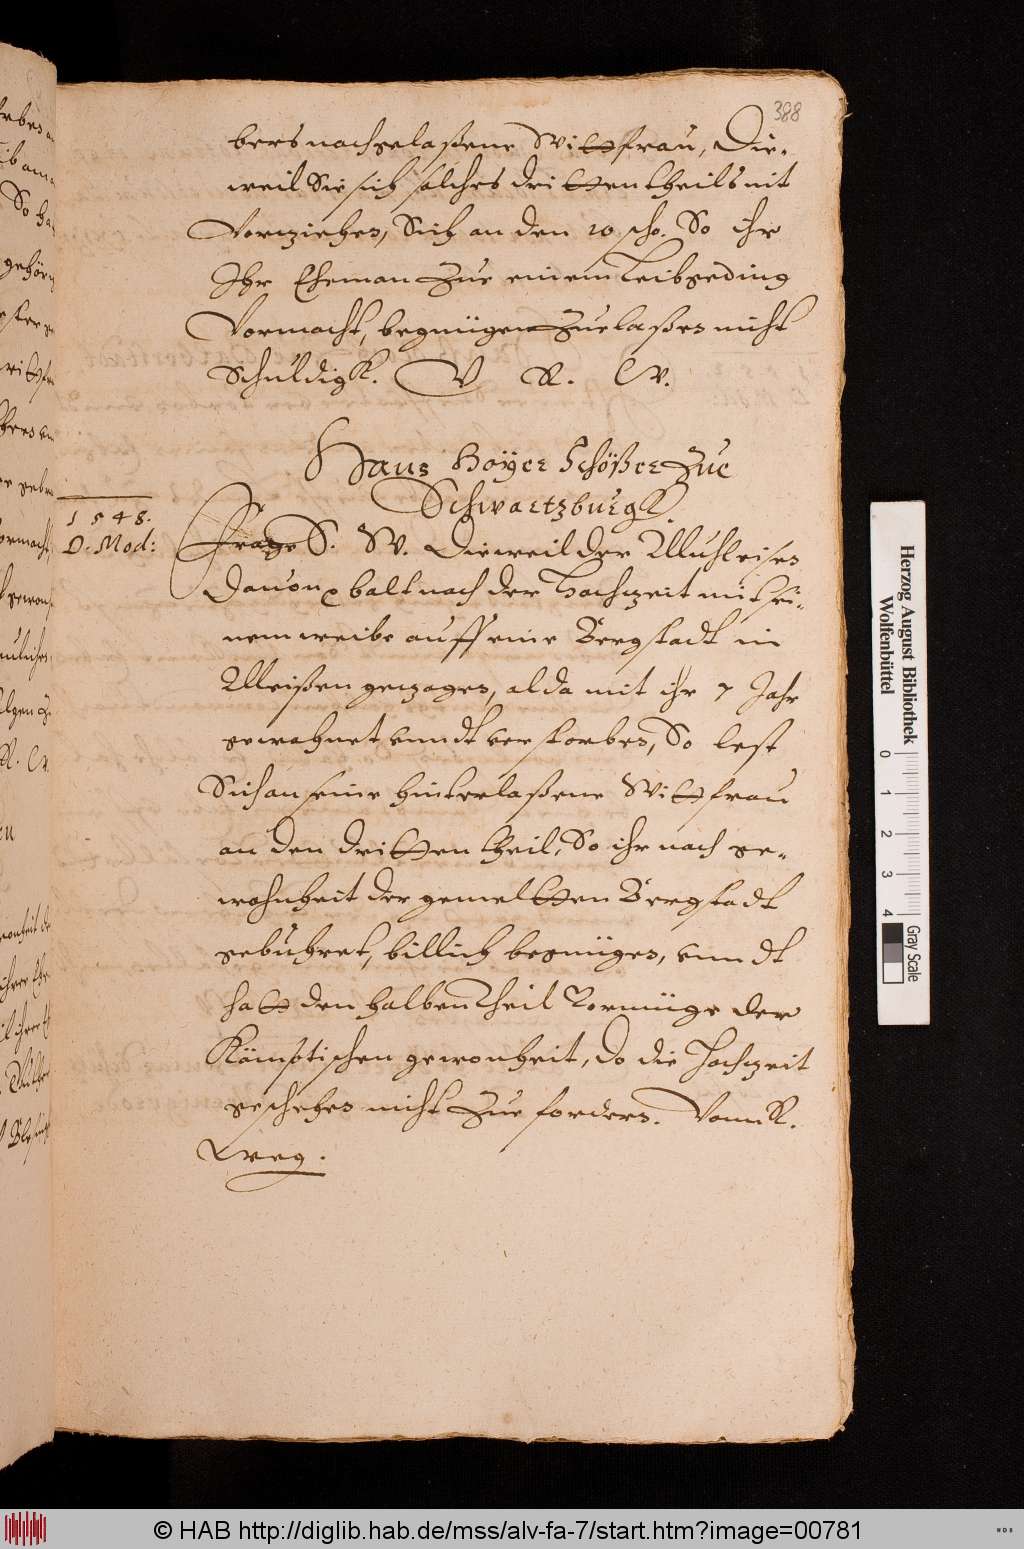 388
bers nachgelaßene Wittfrau, Die-
weil Sie sich solches dritten theils nit
Vorziehen, Sich an den 20 sho. So ihr
Ihr Eheman Zue einem Leibgeding
Vormacht, begnügen Zue laßen nicht
Schuldigk. V R. W.
Hans Boÿer Schößer Zue
Schwartzburgk.
1548.
D. Mod:
Frage S. W. Dieweil der
Dauon balt nach der Hochzeit mit sei-
nem weibe auff eine Bergstadt in
Meißen gezogen, alda mit ihr 7 Jahr
gewohnet vnndt verstorben, So lest
Sich an seine hinterlaßene Wittfrau
an den dritten theil, So ihr nach ge-
wohnheit der gemeltten Bergstadt
gebühret, billich begnügen, vnndt
hatt den halben Theil Vormüge der
gewonheit, do die Hochzeit
geschehen nicht Zue fordern. Vonn R.
weg.
Herzog August Bibliothek
Wolfenbüttel
0 1 2 3 4
Gray Scale
© HAB http://diglib.hab.de/mss/alv-fa-7/start.htm?image=00781